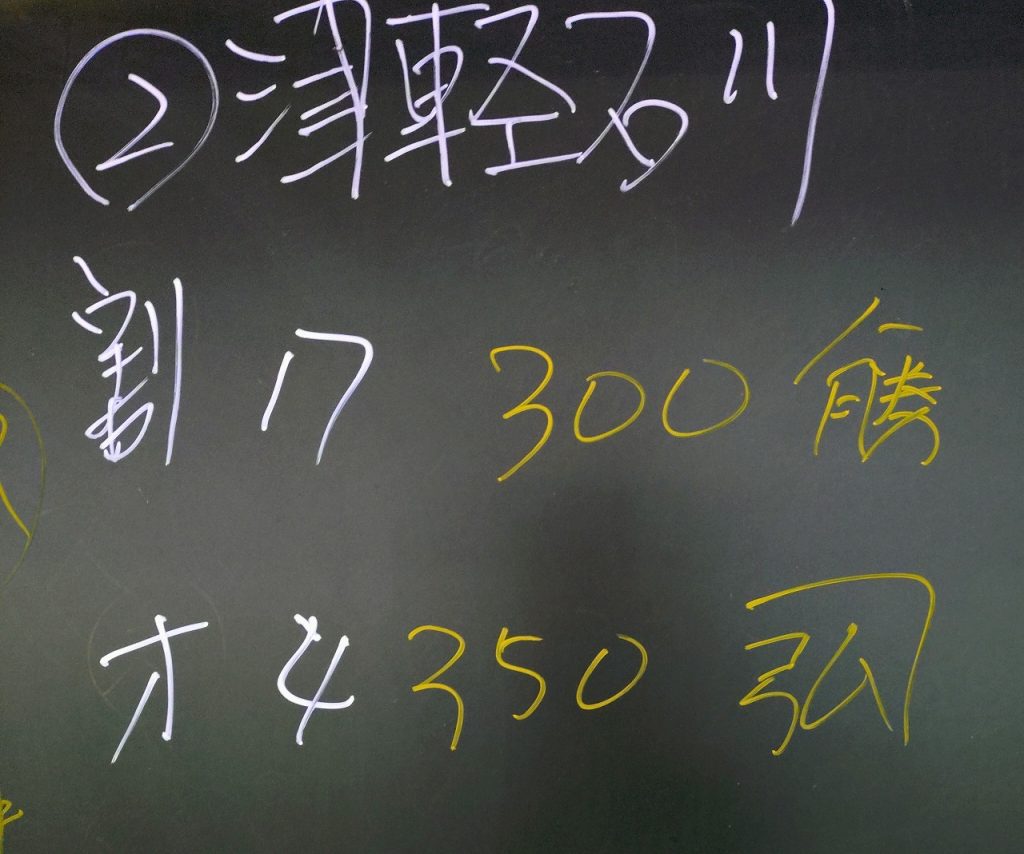 ② 津軽石川
割 17 300 𠆢勝
才 4 350 ㄱ弘